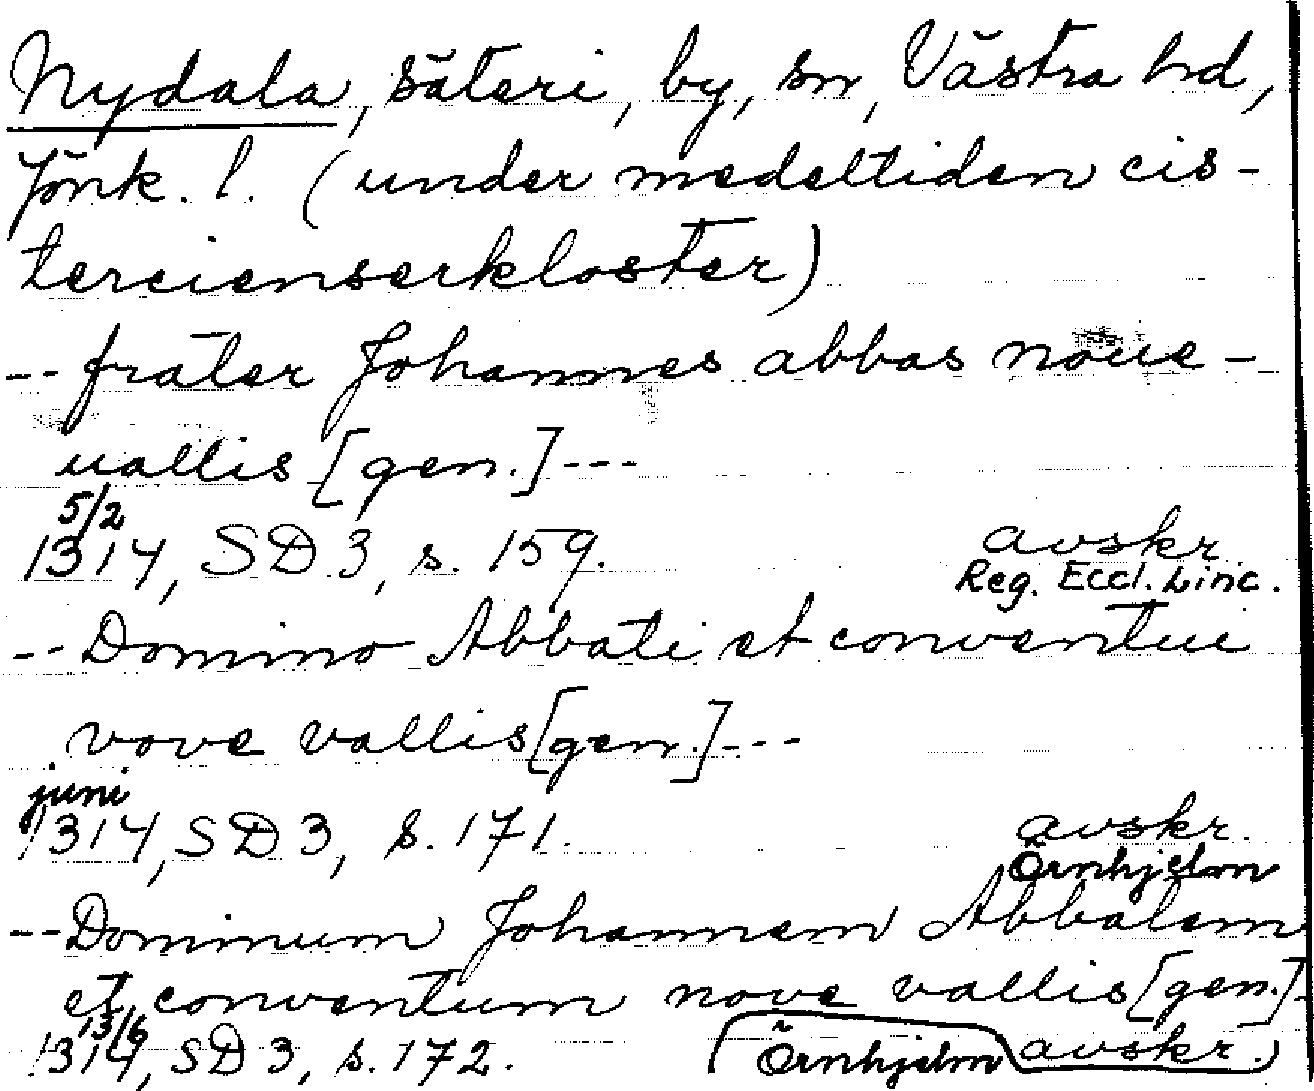 Nydala, säteri, by, sn, Västra hd,
Jönk. l. (under medeltiden cis-
tercienserkloster)
-- frater Johannes abbas noue-
uallis [gen.] ---
5/2
1314, SD 3, s. 159. avskr.
Reg. Eccl. Linc.
-- Domino Abbati et conventui
vove vallis [gen.] ---
juni
1314, SD 3, s. 171. avskr.
Örnhjelm
-- Dominum Johannem Abbatem
et conventum nove vallis [gen.]-
13/6
1314, SD 3, s. 172. (Örnhjelm avskr.)